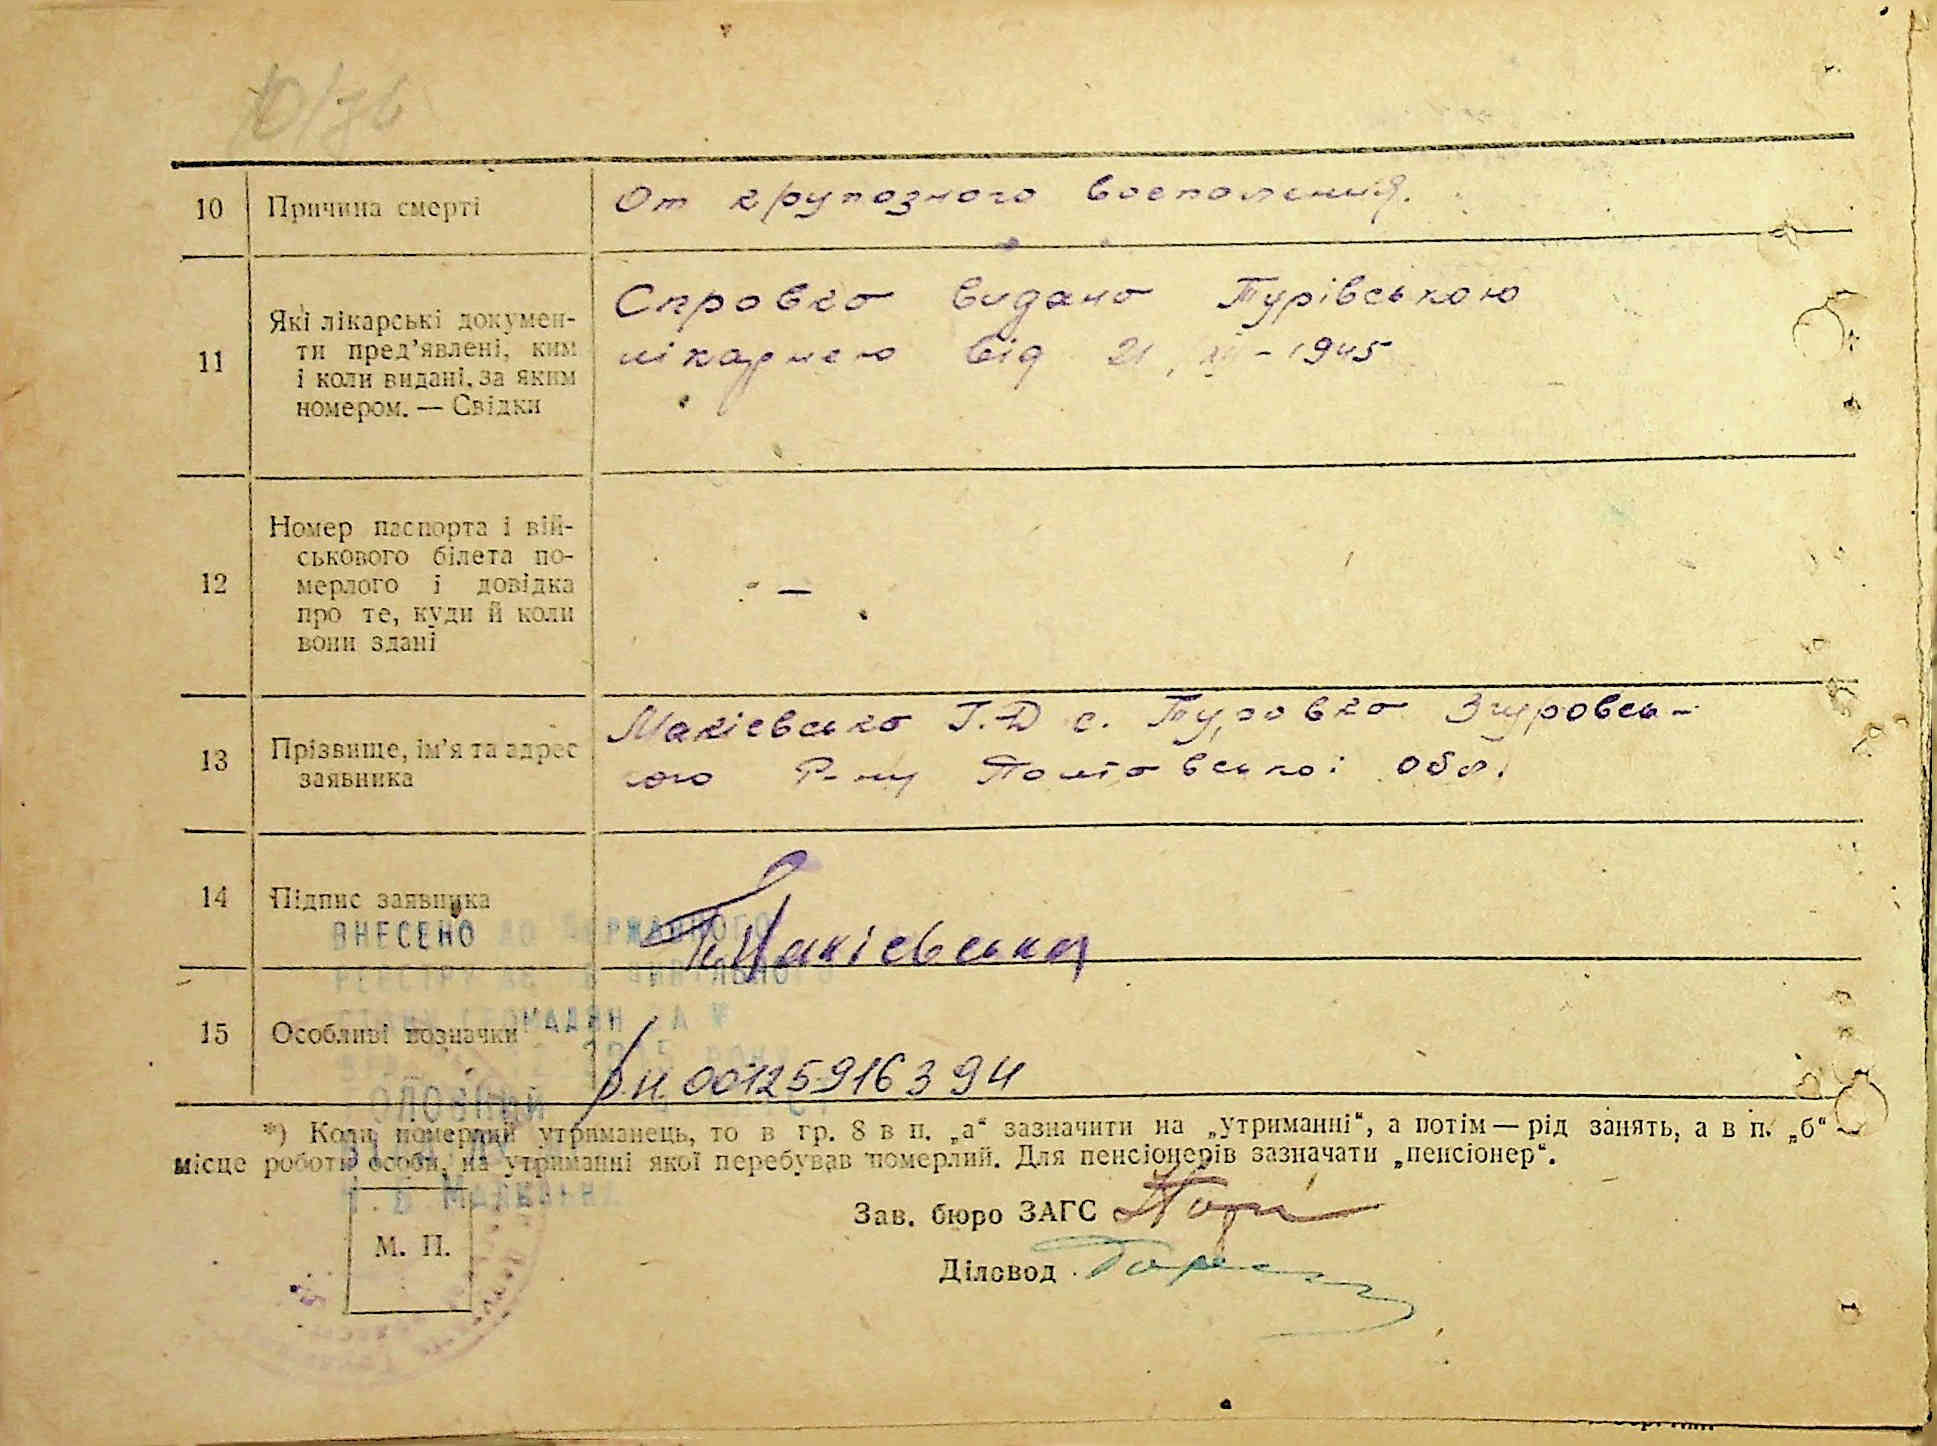 10 Причина смерті От крупозного воспаления.
11 Які лікарські докумен-
ти пред’явлені, ким
і коли видані, за яким
номером. — Свідки
Справка видана Турівською
лікарнею від 21, XII - 1945
12 Номер паспорта і вій-
ськового білета по-
мерлого і довідка
про те, куди й коли
вони здані
—
13 Прізвище, ім’я та адрес
заявника
Макієвська Г.Д с. Туровка Згуровсь-
кого Р-ну Полтавської обл.
14 Підпис заявника
Макієвська
ВНЕСЕНО ДО ДЕРЖАВНОГО
РЕЄСТРУ АКТІВ ЦИВІЛЬНОГО
СТАНУ ГРОМАДЯН ЗА №
15 Особливі позначки
р.н. 00125916394
*) Коли померлий утриманець, то в гр. 8 в п. „а“ зазначити на „утриманні“, а потім — рід занять, а в п. „б“ —
місце роботи особи, на утриманні якої перебував померлий. Для пенсіонерів зазначати „пенсіонер“.
Зав. бюро ЗАГС
М. П.
Діловод